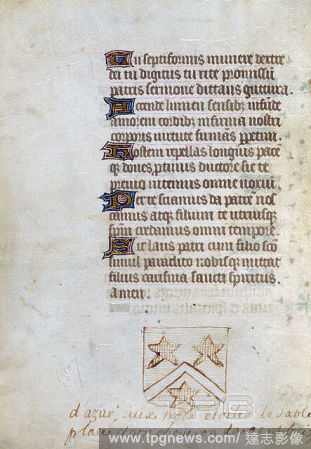 Tu septiformis munere dextre
dei tu digitus tu rite promissu
patris sermone dittans guttura.
Accende lumen sensibus infunde
amorem cordibus infirma nostri
corporis virtute firmans perpeti.
Hostem repellas longius pacem
que dones protinus ductore sic te
previo vitemus omne noxium.
Per te sciamus da patrem nos
camus atque filium te utriusque
spiritum credamus omni tempore.
Sit laus patri cum filio sancto
simul paraclito nobisque mittat
filius carisma sancti spiritus.
Amen.
d'azur, aux trois etoiles de sable
www.tpgnews.com/達志影像